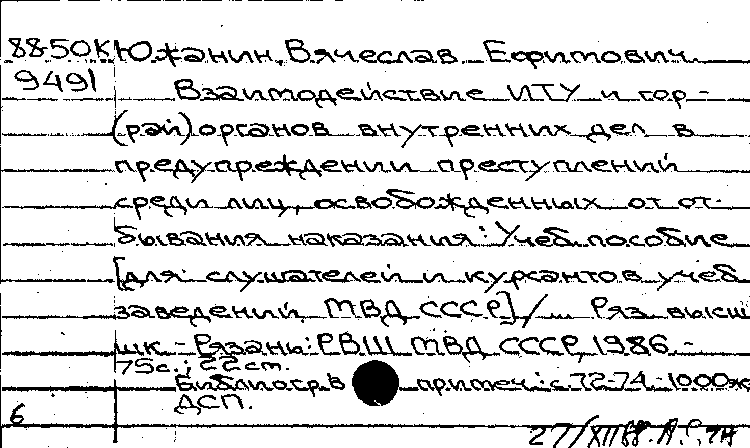 88-50К Южанин, Вячеслав Ефимович.
9491
Взаимодействие ИТУ и гор-
(рай)органов внутренних дел в
предупреждении преступлений
среди лиц, освобожденных от от-
бывания наказания: Учеб. пособие
[для слушателей и курсантов учеб.
заведений МВД СССР] / ... Ряз. высш.
шк. - Рязань: РВШ МВД СССР, 1986. -
75с.; 22 см.
Библиогр. в примеч.: с. 72-74. - 1000
ДСП.
6
27/XII 88.